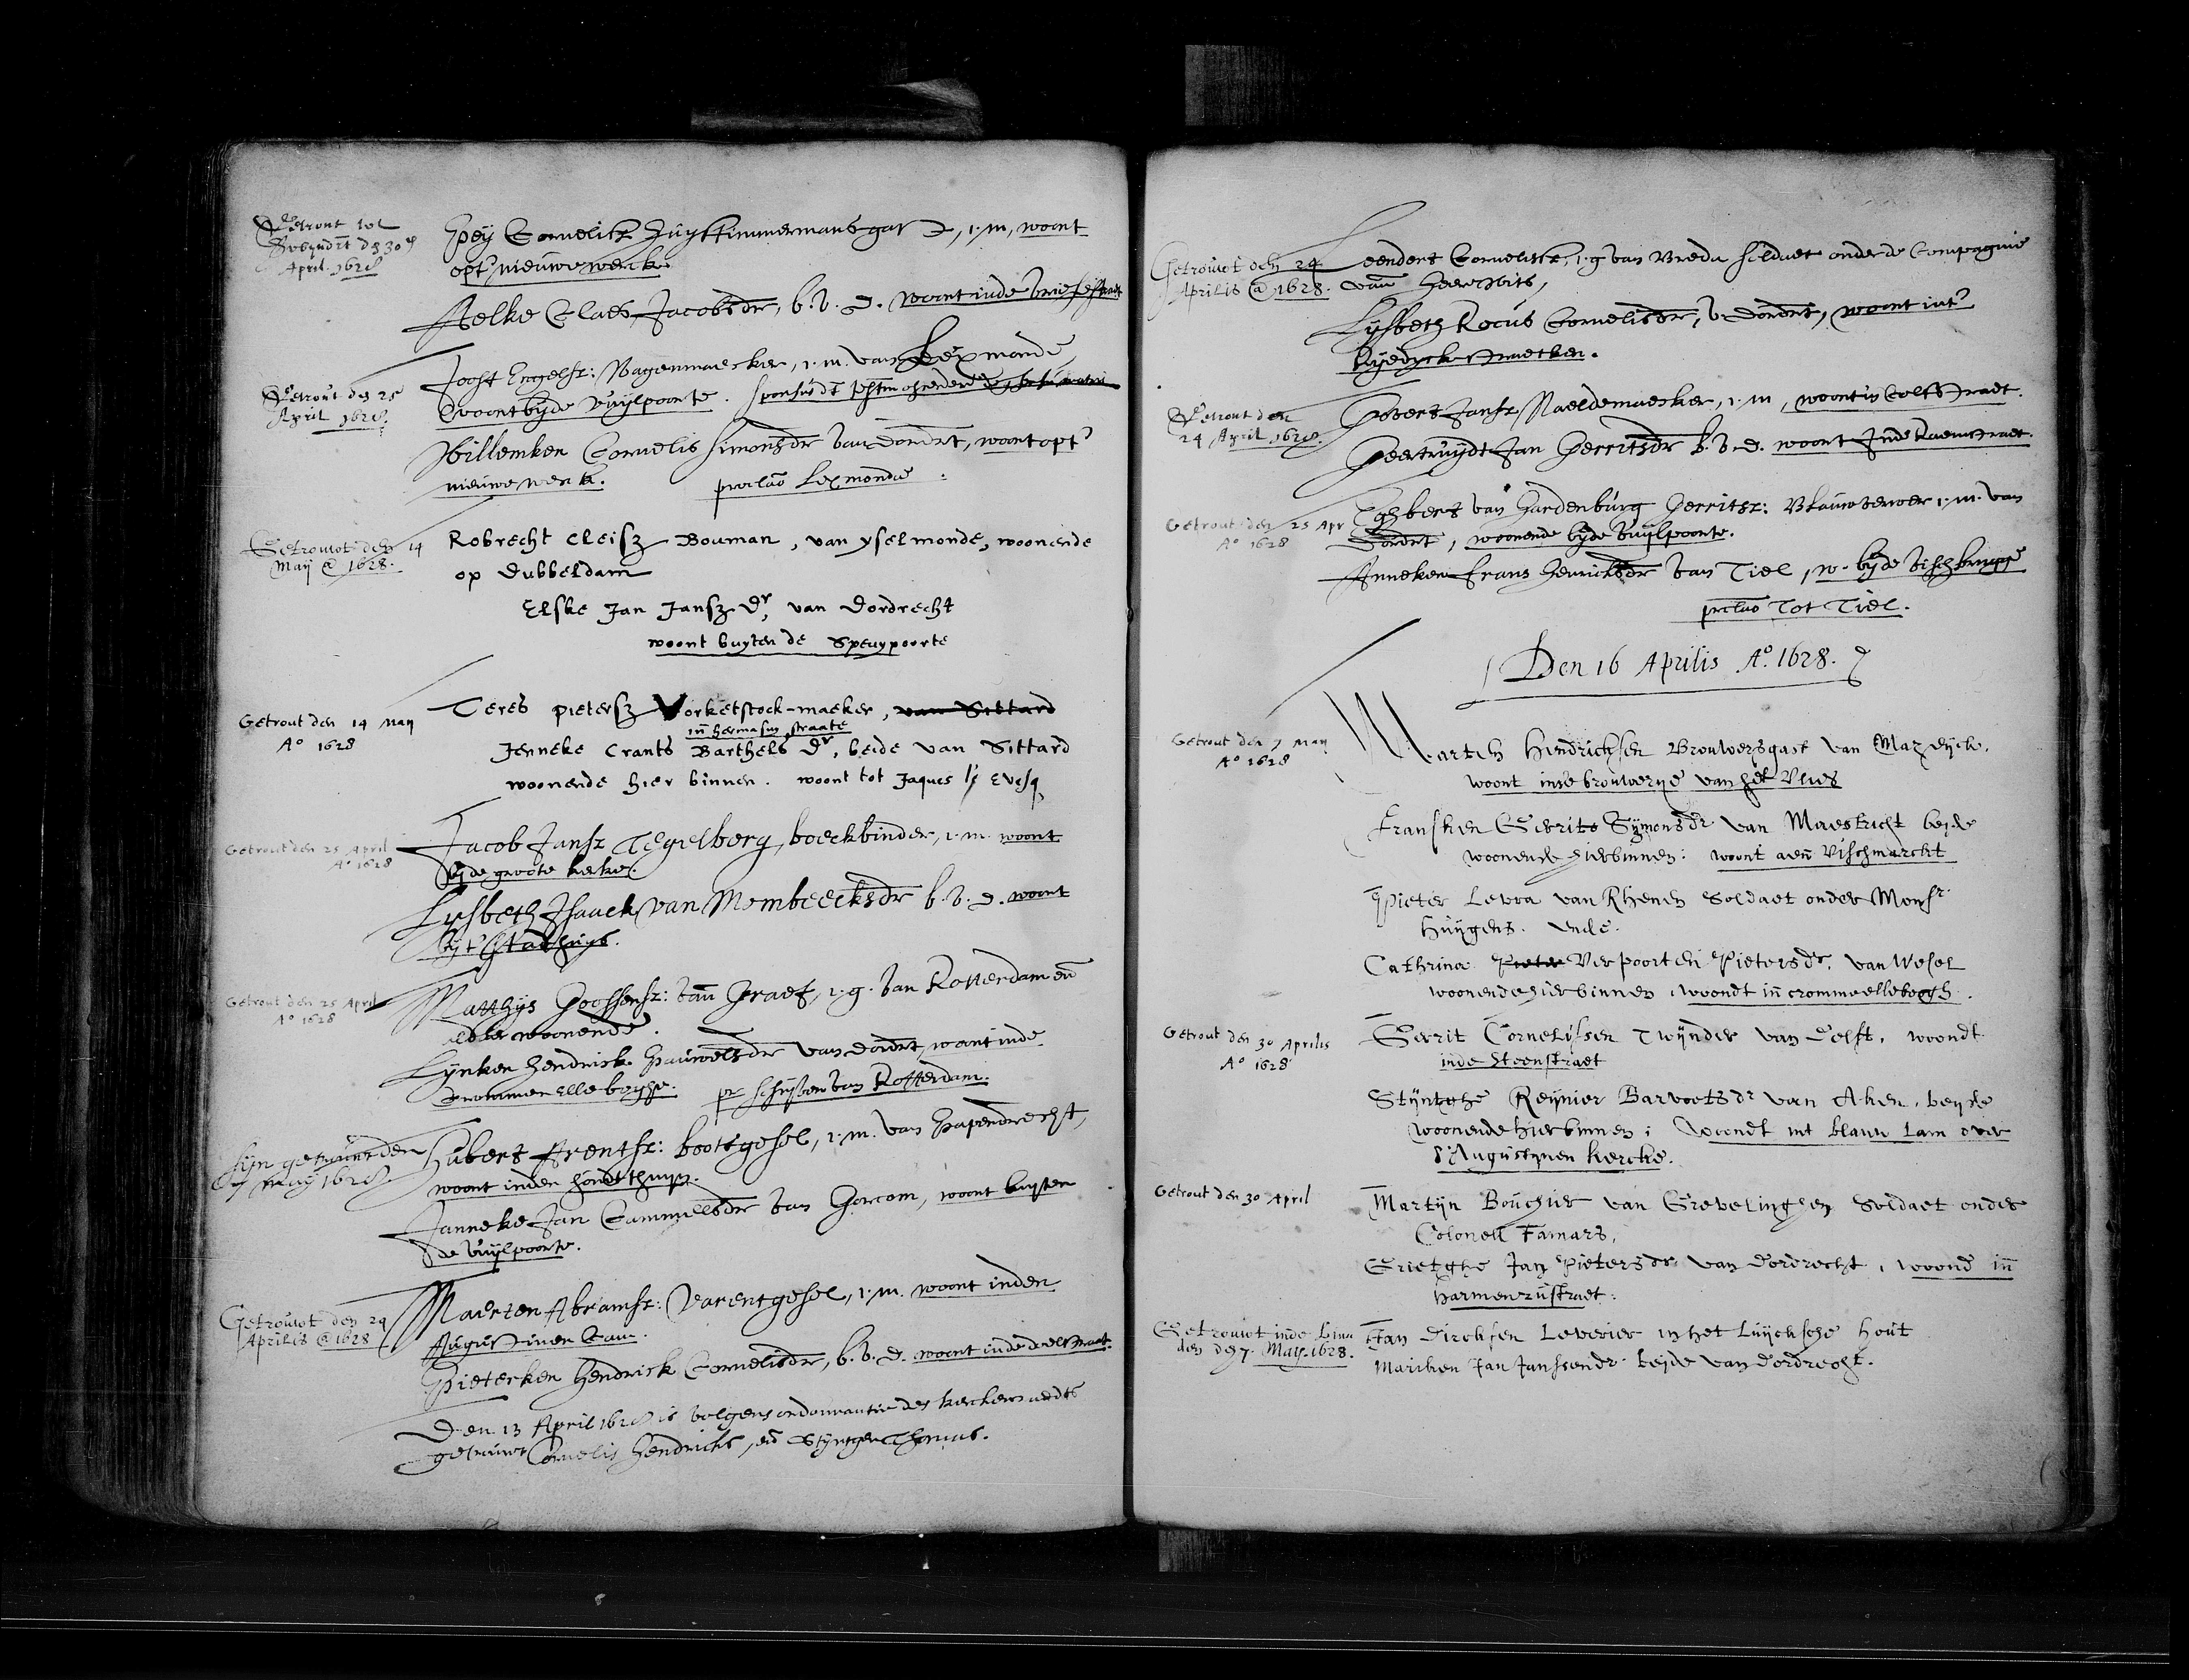 Getrout tot
den 30
April 1628
Cornelisz Huystimmermans gast, j.m, woont
opt nieuwe werck
Aelke Claes Jacobsdr, b.v.d. woont inde
Getrout den 25
April 1628
Joost Engelsz: Wagenmaecker, j.m. van Lexmonde
woont byde Vuylpoorte.
Willemken Cornelis Simonsdr van dordrt, woont opt
nieuwe werck. Lexmonde
Getrouwt den 14
May @ 1628.
Robrecht Cleisz Bouman, van yselmonde, woonende
op Dubbeldam
Elske Jan Jansz Dr, van Dordrecht
woont buyten de Speuypoorte
Getrout den 14 May
A° 1628
Ceres pietersz Vorketstock-maeker, van Sittard
straate
Jenneke Crants Barthels Dr, beide van Sittard
woonende hier binnen. woont tot Jaques
Getrout den 25 April
A° 1628
Jacob Jansz Tegelberg, boeckbinder, j.m. woont
byde groote kerke.
Lysbeth Isaack van Mombeecksdr b.v.d. woont
by t Stadhuys.
Getrout den 25 April
A° 1628
Matthys Goossensz: van Graef, j.g. van Rotterdam en
aldaer woonende.
Lynken Hendrick Pauwelsdr van dordrt, woont inde
crommen elleboghe. schryven van Rotterdam.
syn getrout den
May 1628.
Hubert Arentsz: bootsgesel, j.m. van Papendrecht,
woont inden
Janneke Jan Cammelsdr van Gorcom, woont buyten
de Vuylpoorte.
Getrouwt den 24
Aprilis @ 1628
Maerten Abramsz: Varentgesel, j.m. woont inden
Augustinen Cam.
Pieterken Hendrick Cornelisdr, b.v.d. woont inde
Den 13 April 1628 is volgens ordonnantie des kerckenraedts
getrouwt Cornelis Hendricks, en Styntgen Thomas.
Getrouwt den 24
Aprilis @ 1628.
Leendert Cornelisse, j.g van Breda soldaet onder de Compagnie
van
Lysbeth Rocus Cornelisdr, v. dordrt, woont int
Ryedyck straetken.
Getrout den
24 April 1628.
Govert Jansz Naeldemaecker, j.m, woont in Colfstraet.
Geertruydt Jan Gerritsdr b.v.d. woont Inde Raemstraet.
Getrout den 25 Apr
A° 1628
Egbert van Hardenburg Gerritsz: Blauwverwer j.m. van
Dordrt, woonende byde Vuylpoorte.
Anneken Frans Henricksdr van Tiel, w. byde Vischbrugge
Tot Tiel.
Den 16 Aprilis A°. 1628.
Getrout den 7 May
A° 1628
Marten Hendricksen Brouwersgast van Mazeyck.
woont inde brouwerye van het Vlies
Fransken Gerrits Symonsdr van Maestricht beyde
woonende hierbinnen: woont aen Vischmarckt
Pieter Levra van Rhenen Soldaet onder Monsr.
Huygens. ende.
Cathrina Pieter Verpoorten Pietersdr. van Wesel
woonende hierbinnen, woondt in crommeellebogh.
Getrout den 30 Aprilis
A° 1628
Gerrit Cornelissen Twynder van Delft. woondt
inde Steenstraet
Styntghe Reynier Barvoetsdr van Aken, beyde
woonende hierbinnen; woondt int blauw Lam over
d'Augustynen kercke.
Getrout den 30 April
Martyn Bouchier van Grevelinghen Soldaet onder
Colonell Famars,
Grietghe Jan Pietersdr van Dordrecht, woond in
Harmenzustraet.
Getrouwt inde
den 7. May. 1628.
Jan Dircksen Leverier in het Luycksche Hout
Mariken Jan Janssendr. beyde van Dordrecht.